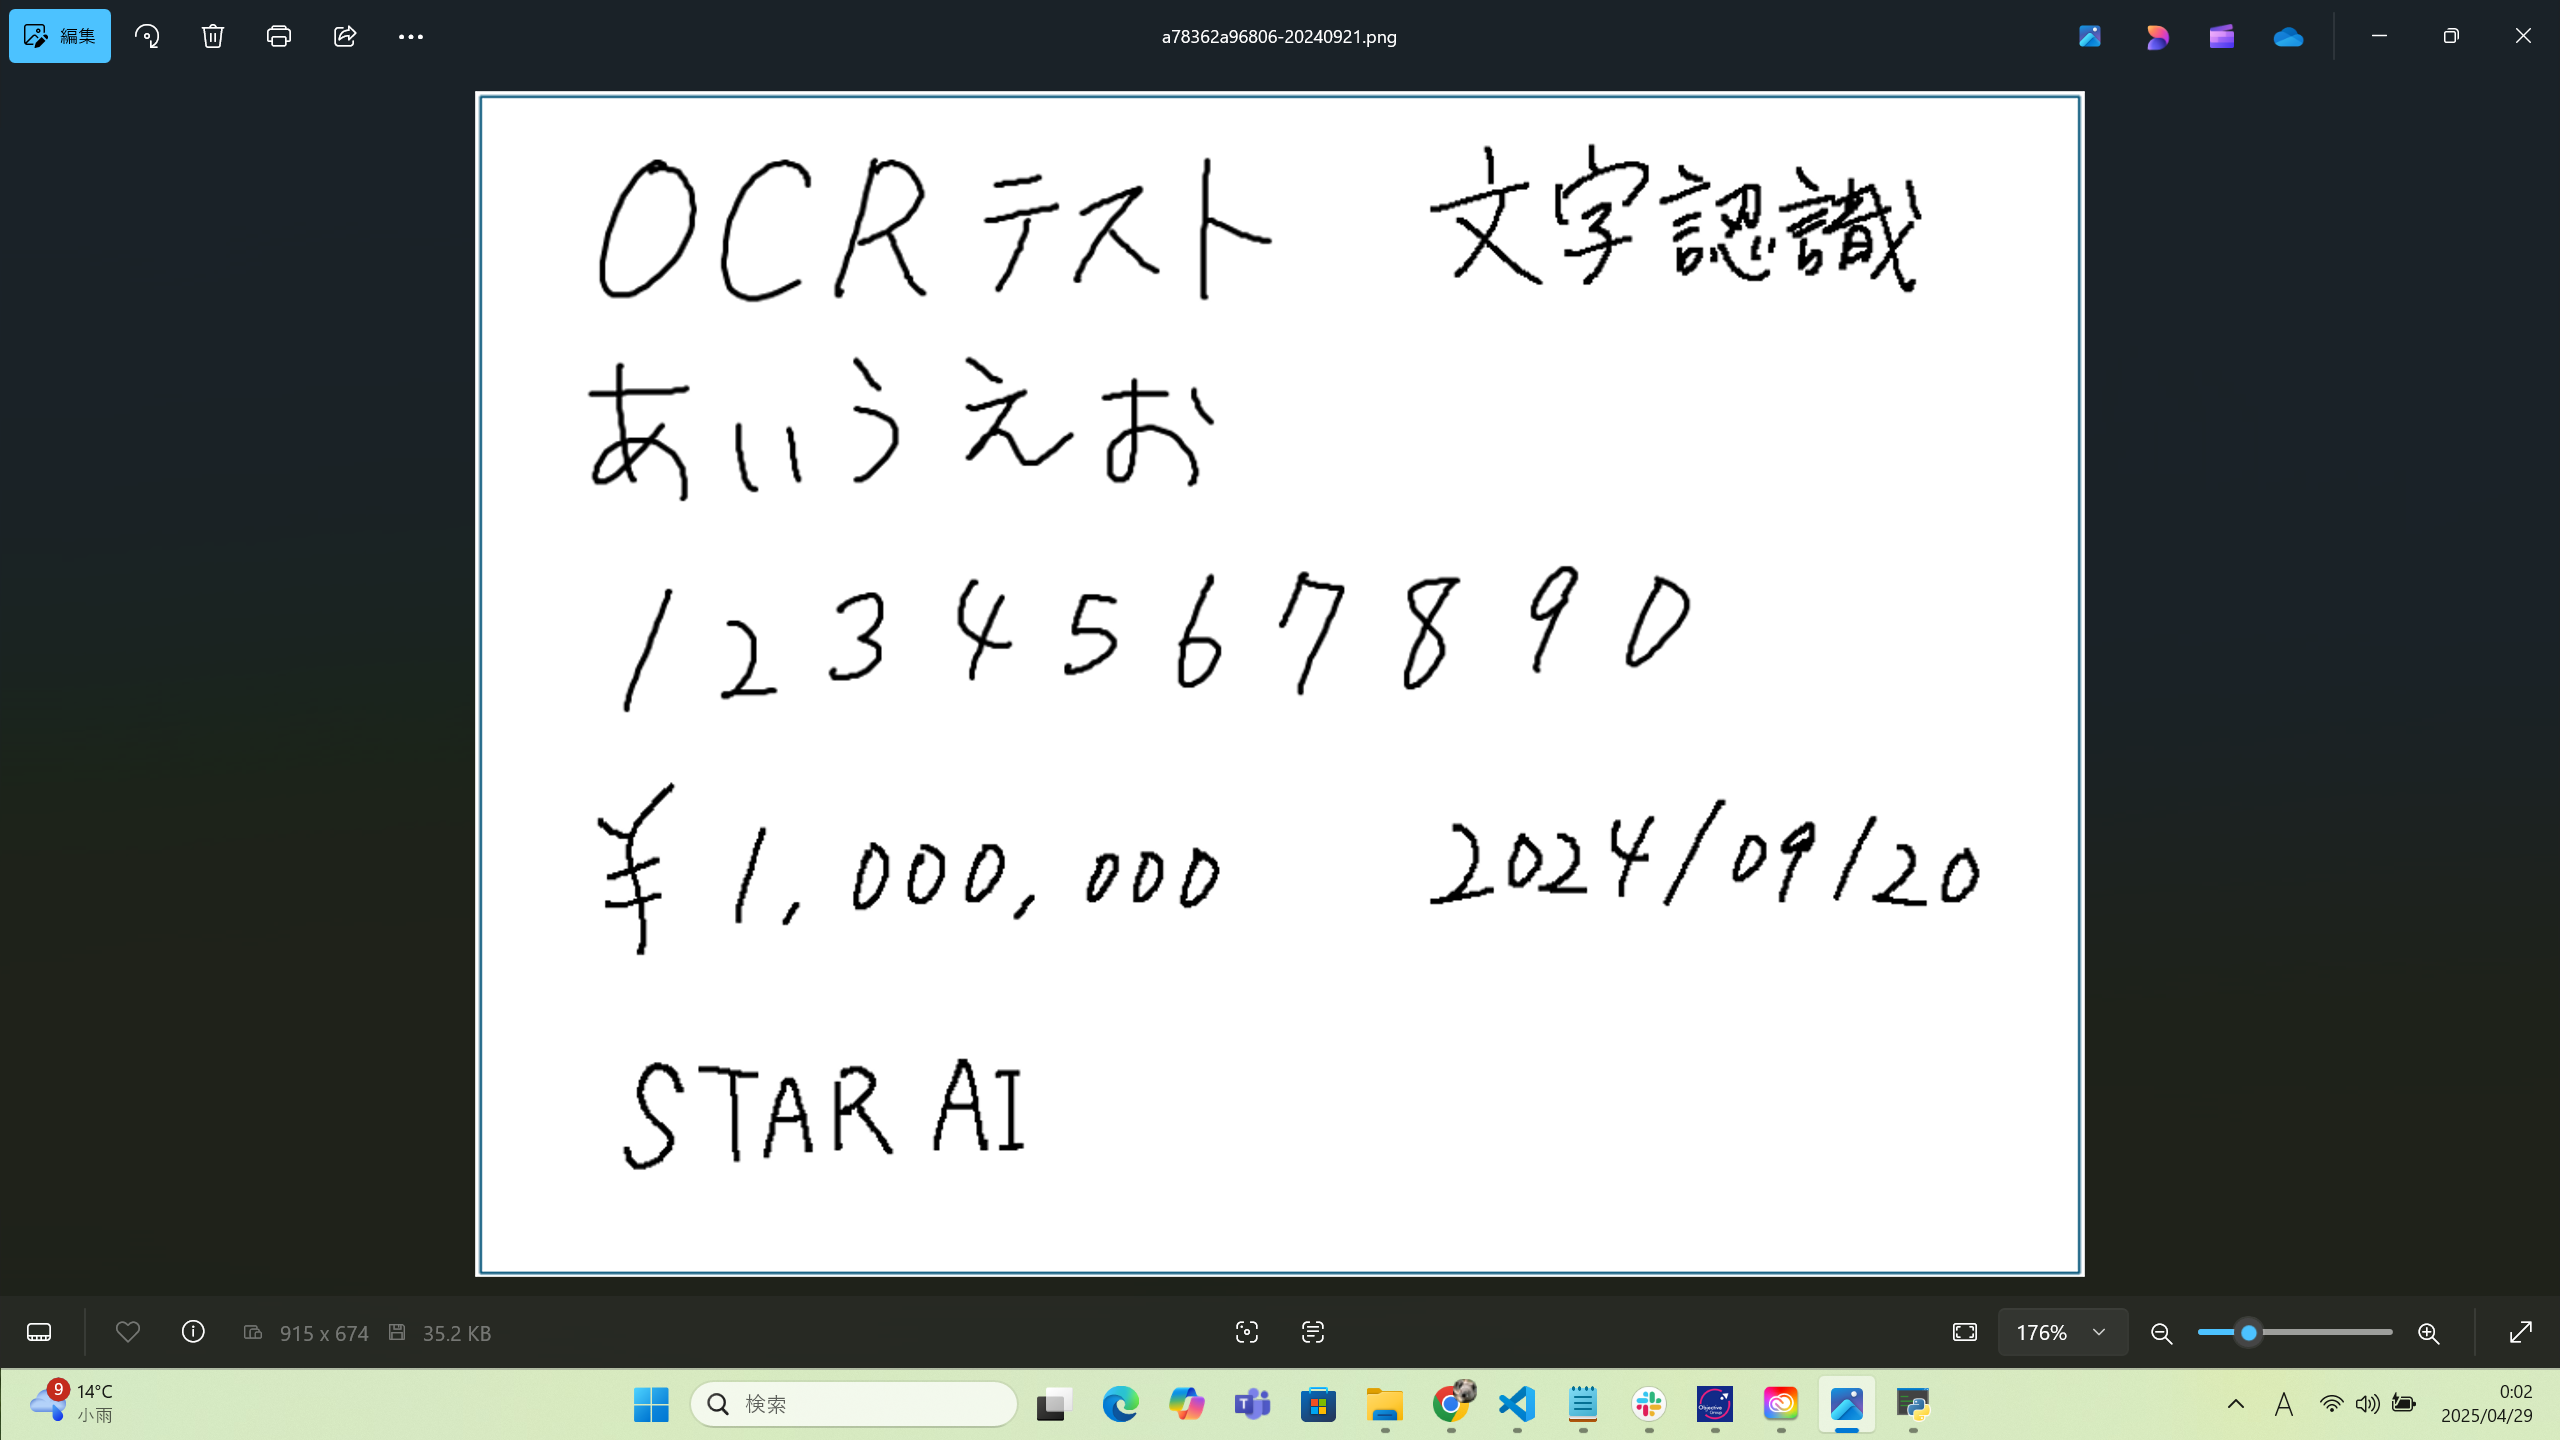 編集
a78362a96806-20240921.png
OCR テスト 文字認識
あいうえお
1 2 3 4 5 6 7 8 9 0
¥ 1,000,000 2024/09/20
STAR AI
915 x 674 35.2 KB 176%
9 14°C 検索 A 0:02
小雨 2025/04/29